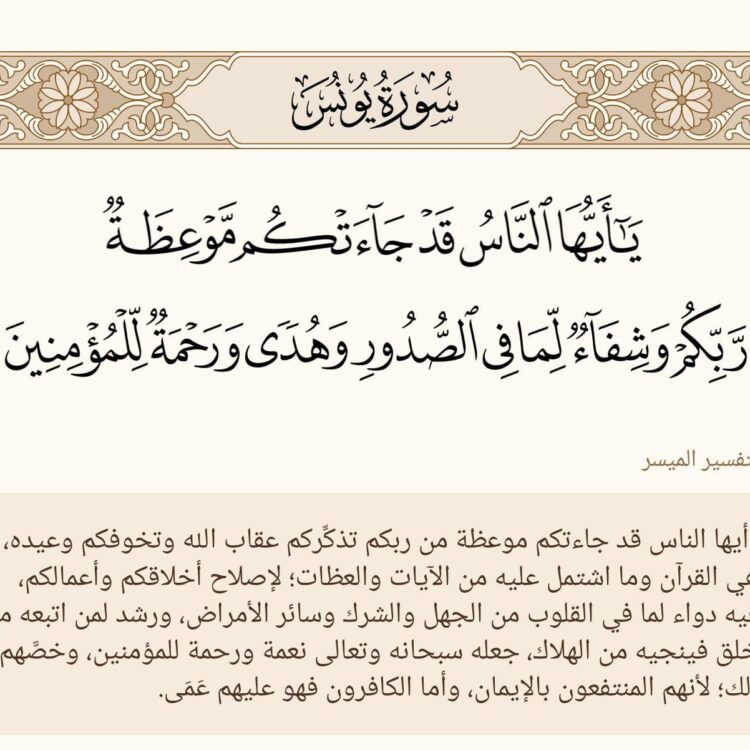 سُورَةُ يُونُسَ
يَـٰٓأَيُّهَا ٱلنَّاسُ قَدْ جَآءَتْكُم مَّوْعِظَةٌ
رَّبِّكُمْ وَشِفَآءٌ لِّمَا فِى ٱلصُّدُورِ وَهُدًى وَرَحْمَةٌ لِّلْمُؤْمِنِينَ
تفسير الميسر
أيها الناس قد جاءتكم موعظة من ربكم تذكِّركم عقاب الله وتخوفكم وعيده،
هي القرآن وما اشتمل عليه من الآيات والعظات؛ لإصلاح أخلاقكم وأعمالكم،
فيه دواء لما في القلوب من الجهل والشرك وسائر الأمراض، ورشد لمن اتبعه
فينجيه من الهلاك، جعله سبحانه وتعالى نعمة ورحمة للمؤمنين، وخصَّهم
لأنهم المنتفعون بالإيمان، وأما الكافرون فهو عليهم عَمَى.